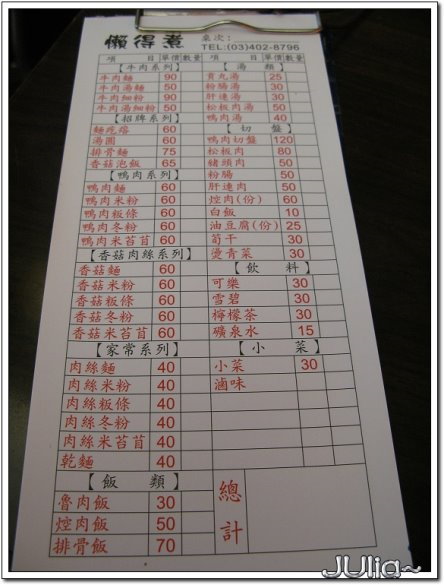 懶得煮
桌次:
TEL:(03)402-8796
項 目 單價 數量
【牛肉系列】
牛肉麵 90
牛肉湯麵 50
牛肉細粉 90
牛肉湯細粉 50
【招牌系列】
麵疙瘩 60
湯圓 60
排骨麵 75
香菇泡飯 65
【鴨肉系列】
鴨肉麵 60
鴨肉米粉 60
鴨肉粄條 60
鴨肉冬粉 60
鴨肉米苔苜 60
【香菇肉絲系列】
香菇麵 60
香菇米粉 60
香菇粄條 60
香菇冬粉 60
香菇米苔苜 60
【家常系列】
肉絲麵 40
肉絲米粉 40
肉絲粄條 40
肉絲冬粉 40
肉絲米苔苜 40
乾麵 40
【飯 類】
魯肉飯 30
焢肉飯 50
排骨飯 70
項 目 單價 數量
【湯 類】
貢丸湯 25
粉腸湯 30
肝連湯 30
松板肉湯 50
鴨肉湯 40
【切 盤】
鴨肉切盤 120
松板肉 80
豬頭肉 50
粉腸 50
肝連肉 50
焢肉(份) 60
白飯 10
油豆腐(份) 25
筍干 30
燙青菜 30
【飲 料】
可樂 30
雪碧 30
檸檬茶 30
礦泉水 15
【小 菜】
小菜 30
滷味
總計
JUlia~